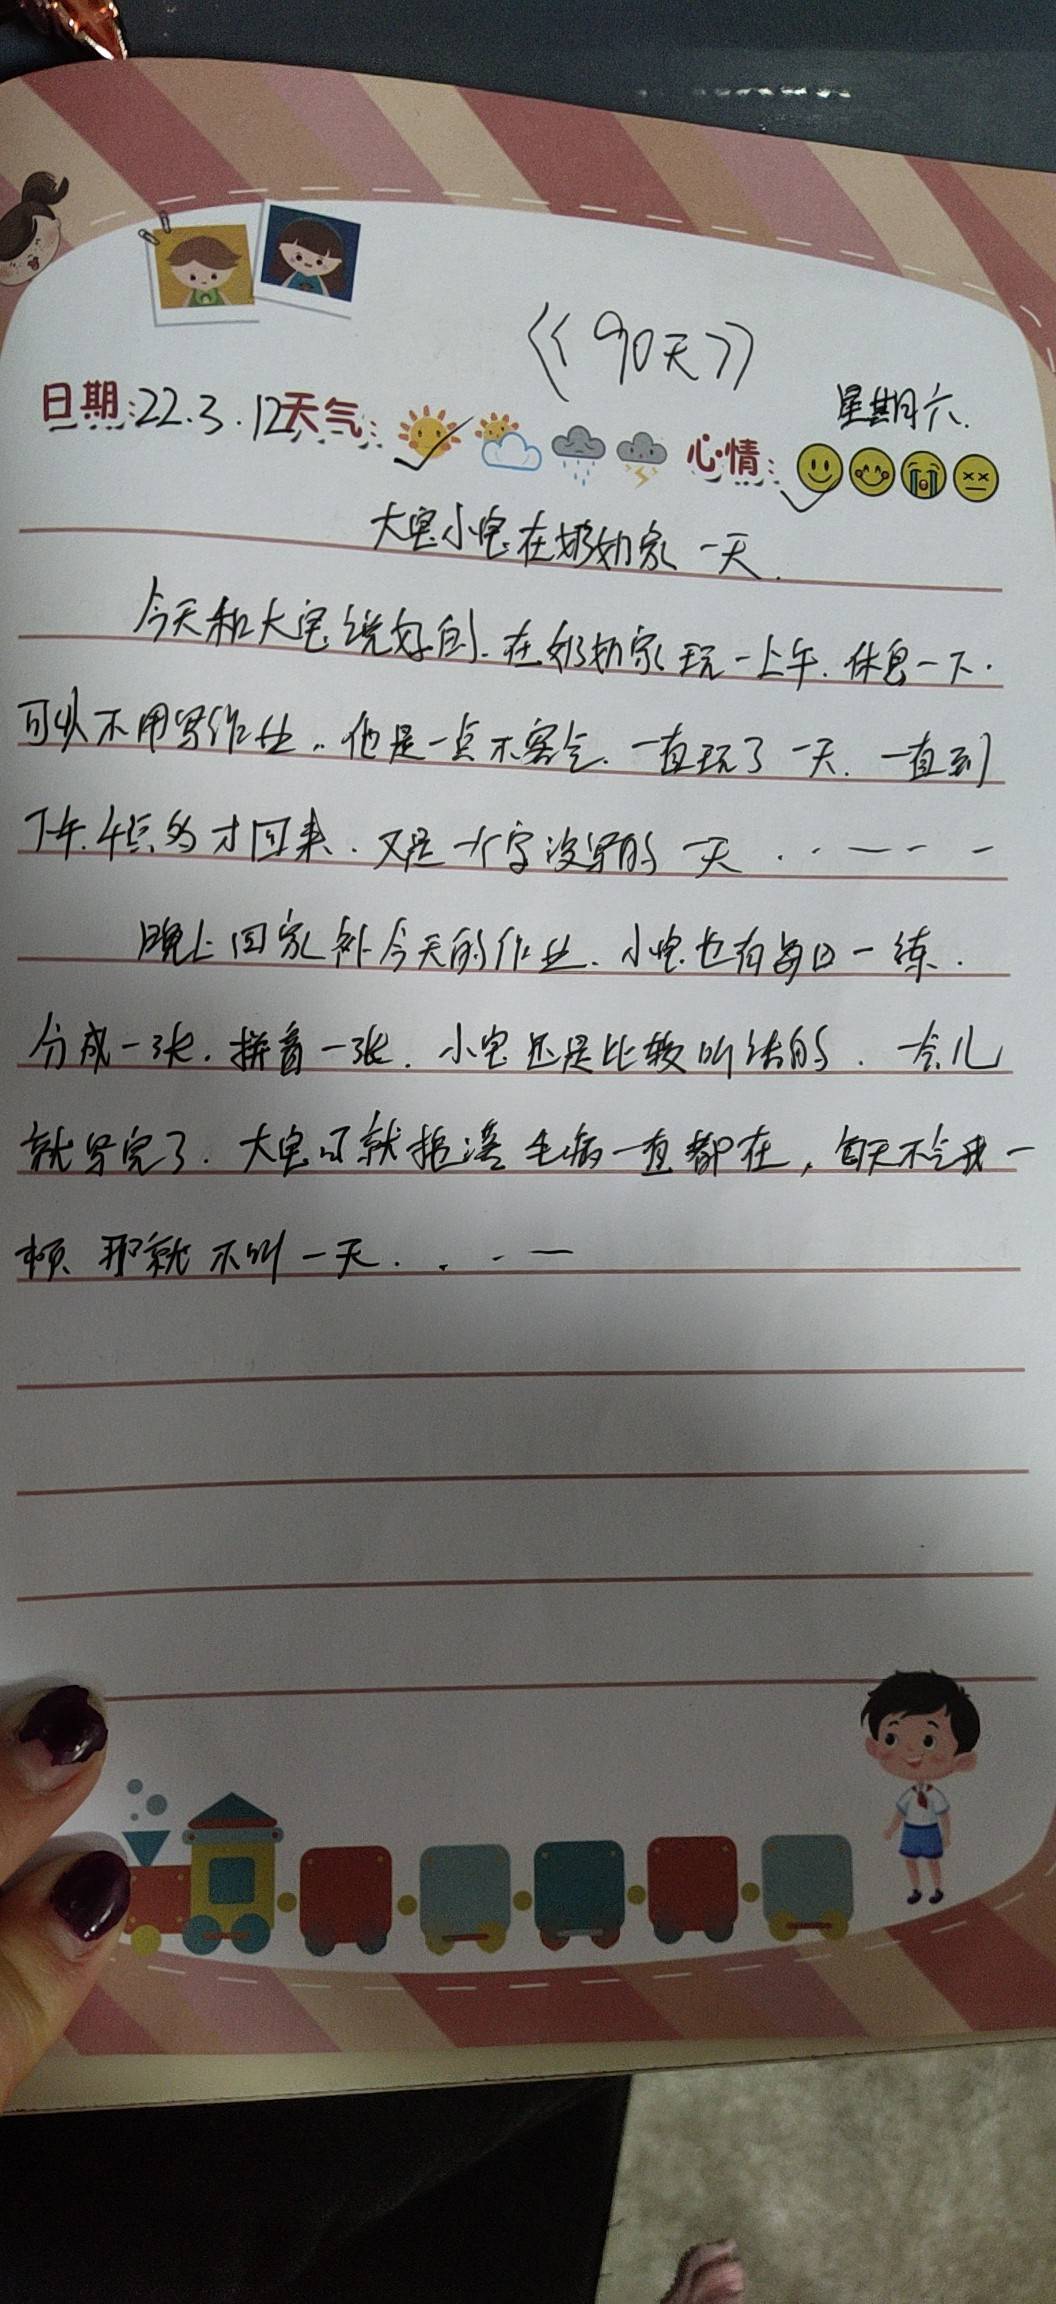 《90天》
日期:22.3.12天气: 心情: 星期六.
大宝小宝在奶奶家一天.
今天和大宝说好的.在奶奶家玩一上午.休息一下.
可以不用写作业..他是一点不客气.一直玩了一天.一直到
下午.4点多才回来.又是一个字没写的一天...———
晚上回家补今天的作业.小宝也有每日一练.
分成一张.拼音一张.小宝还是比较听话的.一会儿
就写完了.大宝 就 毛病一直都在,每天不气我一
顿.那就不叫一天...—